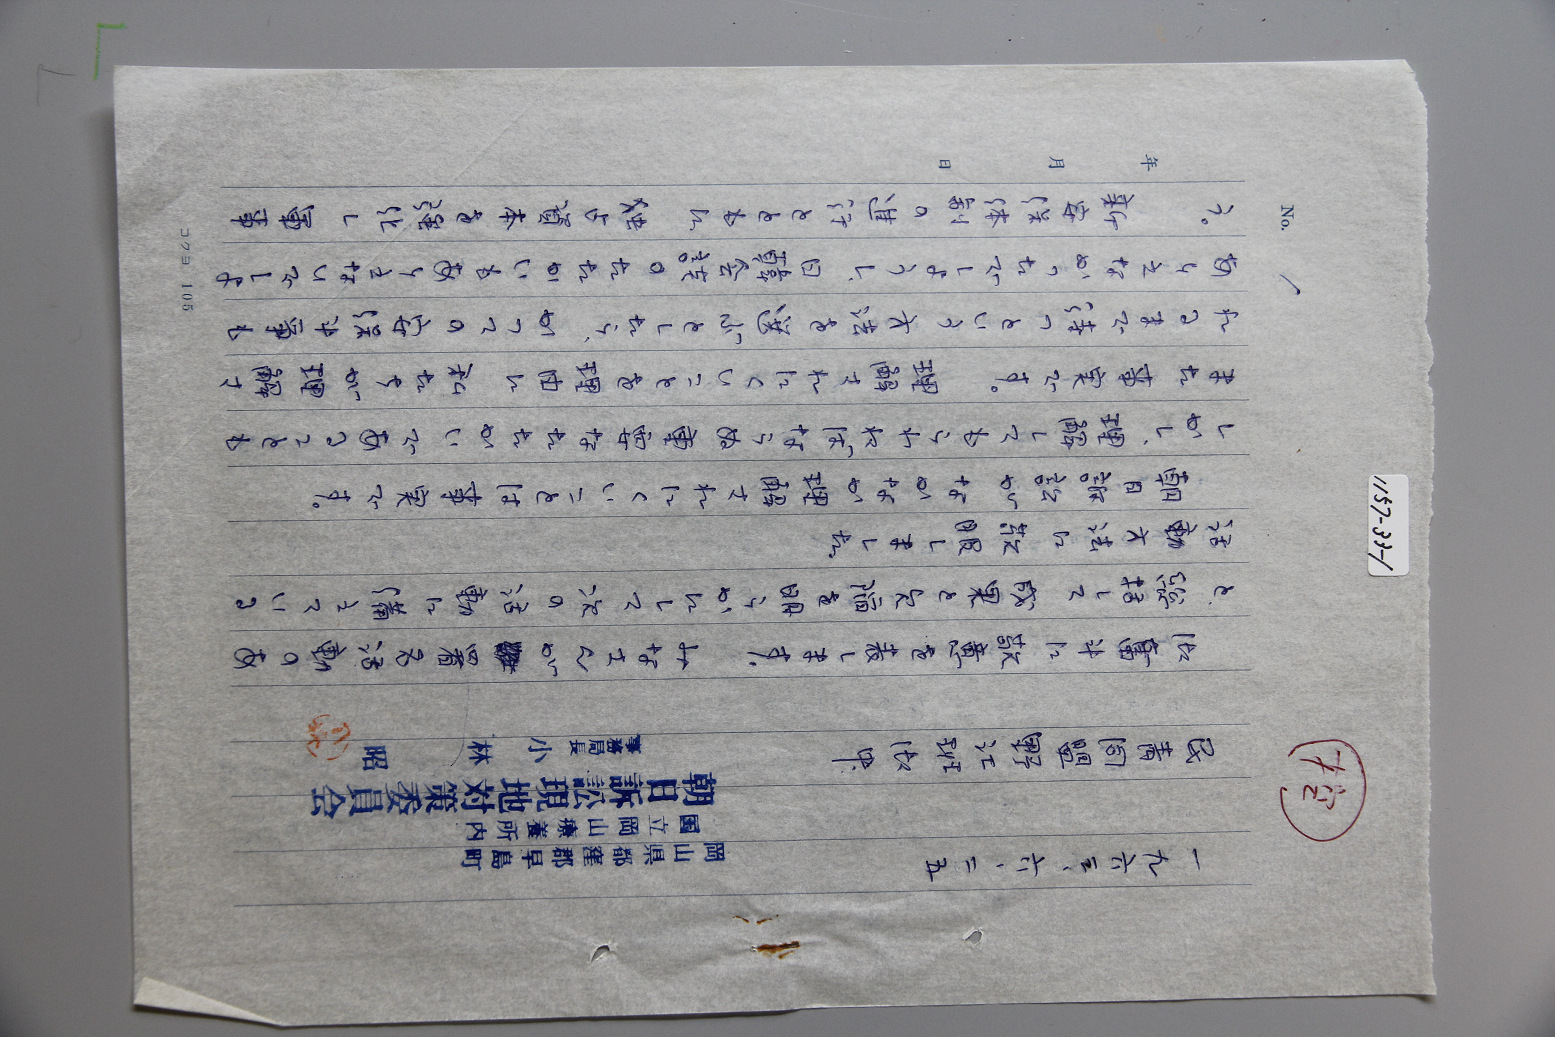 No. 1
年 月 日
一九六三、六、二五
民青同盟野江班御中
岡山県都窪郡早島町
国立岡山療養所内
朝日訴訟現地対策委員会
事務局長 小林 昭
御奮斗に敬意を表します。みなさんが署名活動のあ
と、総括して成果と欠陥を明らかにして次の活動に備えている
活動方法に敬服しました。
朝日訴訟がなかなか理解されにくいことは事実です。
しかし、理解してもらわねばならぬ重要なたたかいであることも
また事実です。理解されにくいことを理由に私たちが理解さ
れるまで待つという方法を選ぶとしたら、かつての安保斗争も
ありえなかったでしょうし、日韓会談のたたかいもありえないでしょ
う。新安保体制の進行とともに独占資本を強化し軍事
コクヨ 105
1157-33-1